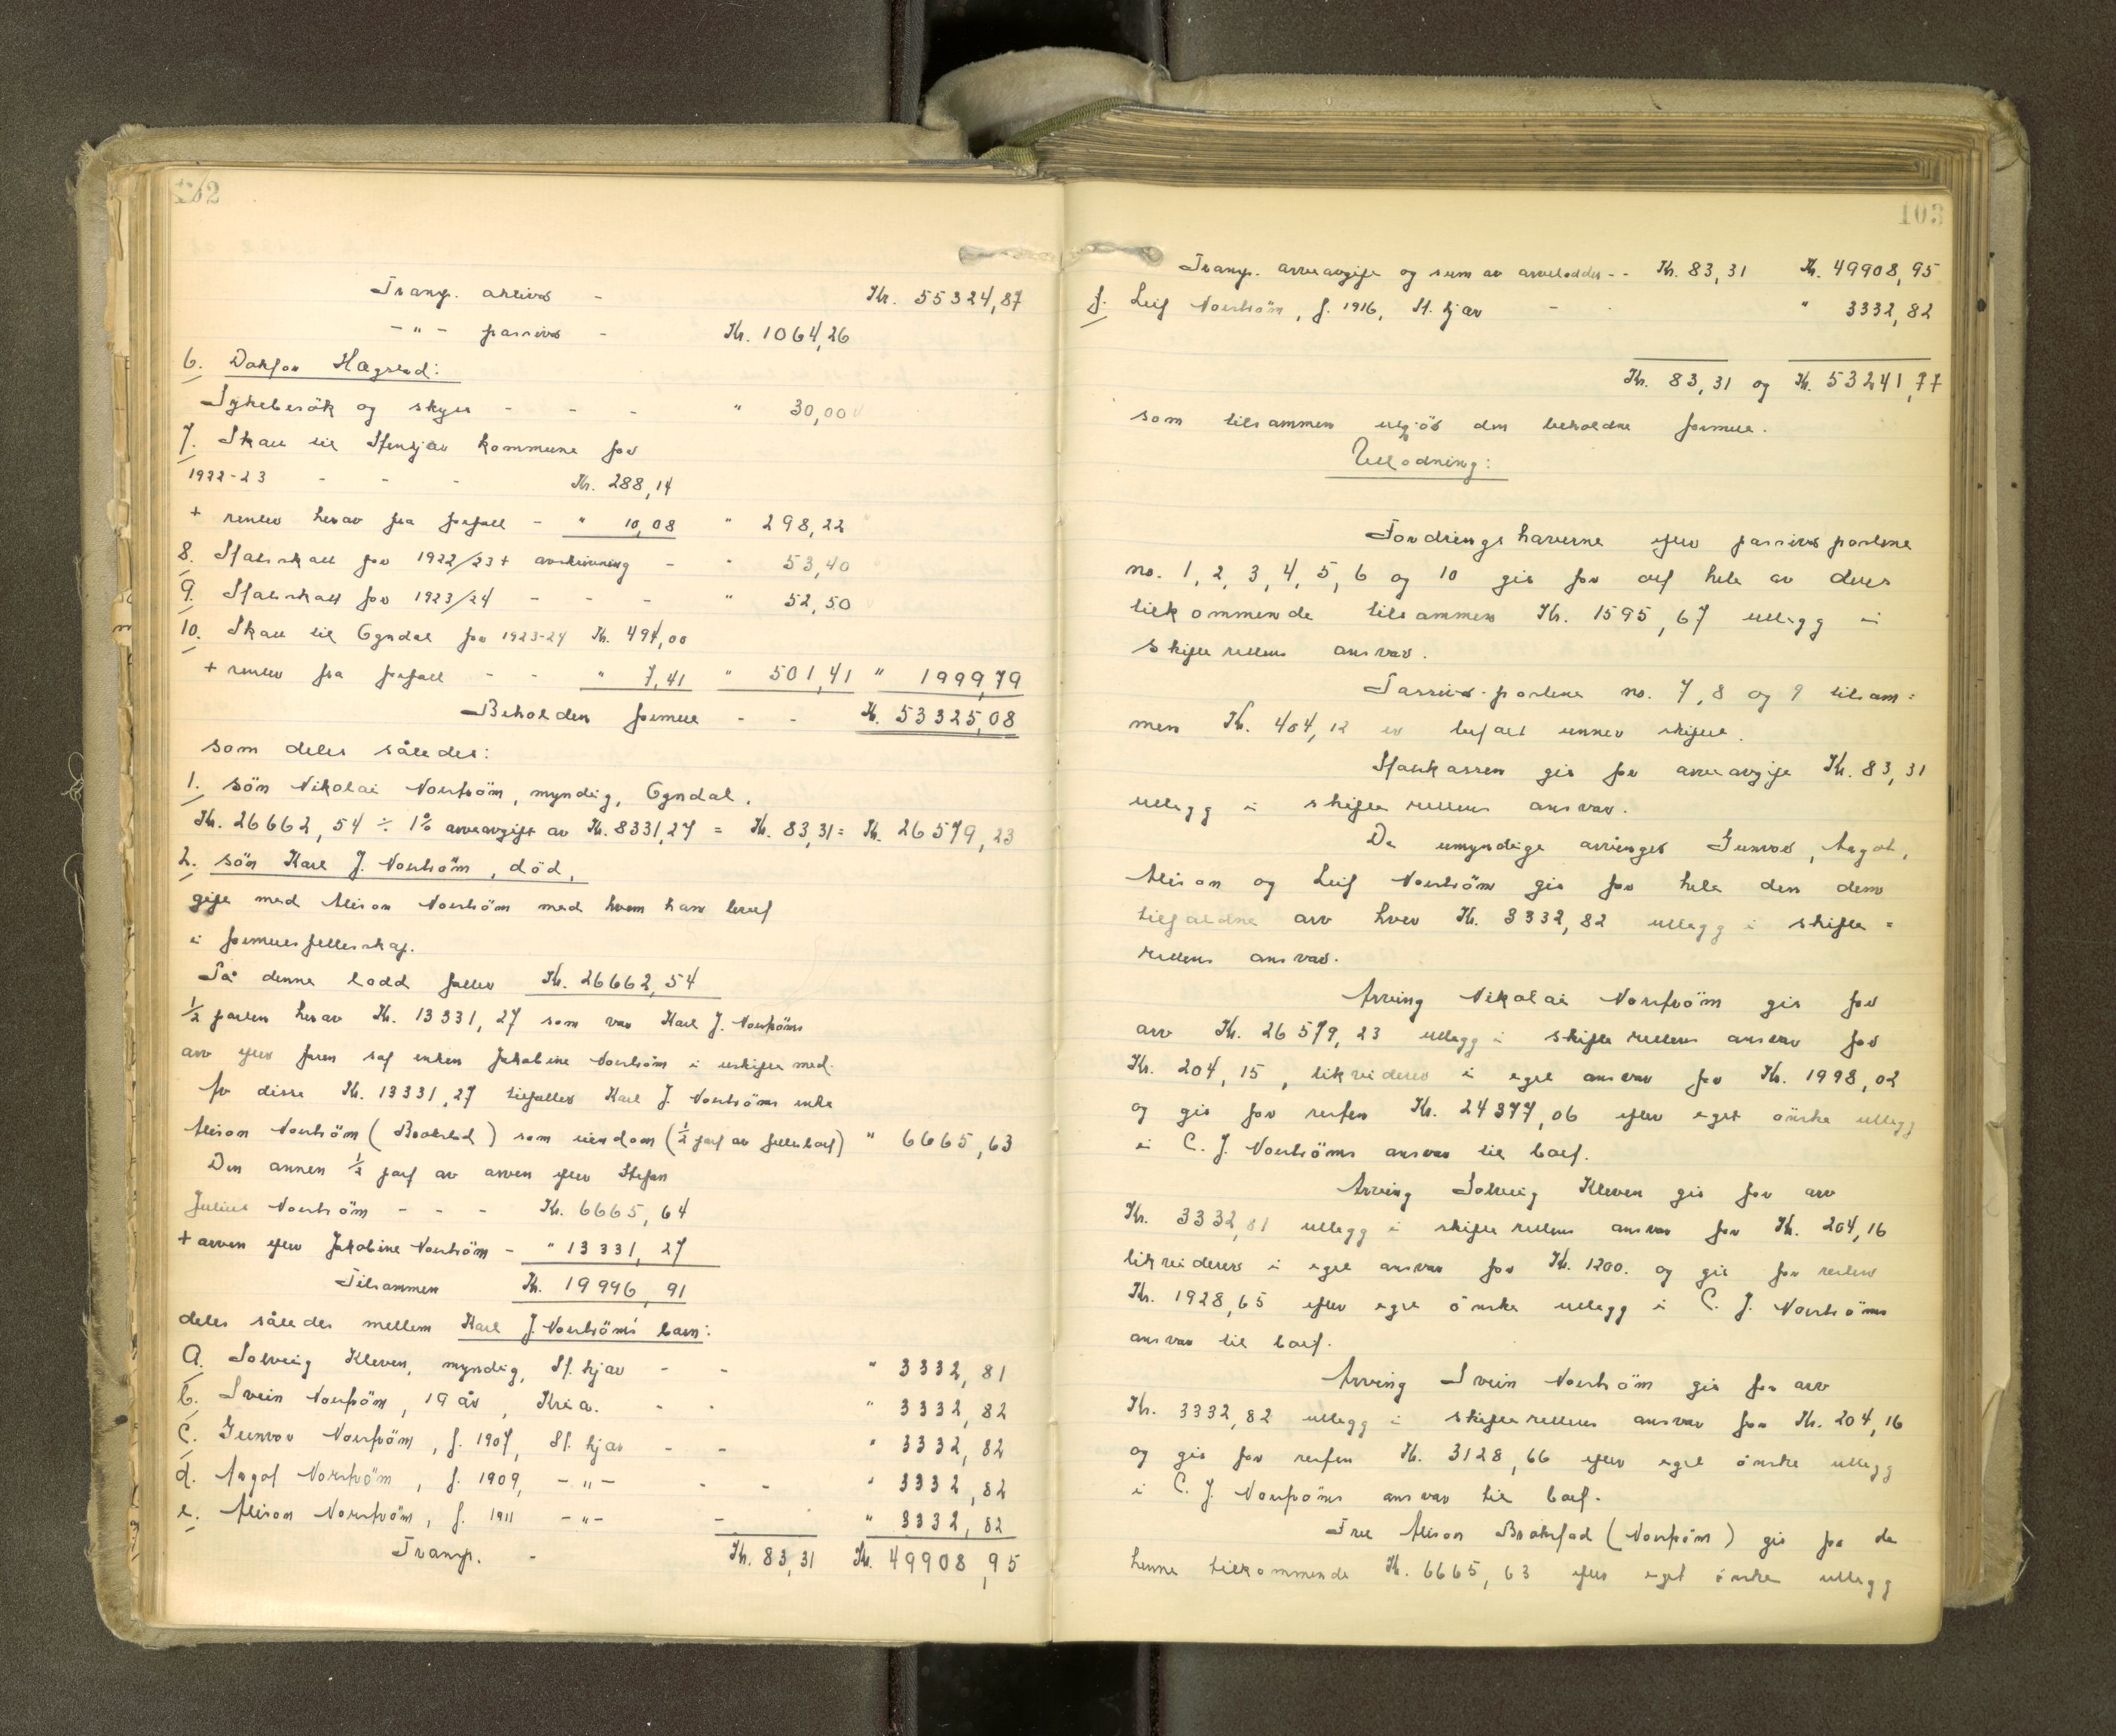 102
Transp. aktiva - Kr. 55324,87
-"- passiva - Kr. 1064,26
6. Doktor Hagstad:
Sykebesök og skyss - - - " 30,00
7. Skatt til Stenkjær kommune for
1922-23 - - - Kr. 288,14
+ renter herav fra forfall - " 10,08 " 298,22
8. Statsskatt for 1922/23 + avskrivning - " 53,40
9. Statsskatt for 1923/24 - - - " 52,50
10. Skatt til Ogndal for 1923-24 Kr. 494,00
+ renter fra forfall - - " 7,41 " 501,41 " 1999,79
Beholden formue - - Kr. 53325,08
som deles således:
1. sön Nikolai Norström, myndig, Ogndal.
Kr. 26662,54 ÷ 1% arveavgift av Kr. 8331,27 = Kr. 83,31 = Kr. 26579,23
2. sön Karl J. Norström, död,
gift med Alison Norström med hvem han levet
i formuesfellesskap.
På denne lodd faller Kr. 26662,54
1/2 parten herav Kr. 13331,27 som var Karl J. Norströms
arv efter faren sat enken Jakobine Norström i uskifte med.
Av disse Kr. 13331,27 tilfaller Karl J. Norströms enke
Alison Norström (Brakstad) som eiendom (1/2 part av fellesboet) " 6665,63
Den annen 1/2 part av arven efter Stefan
Julius Norström - - - Kr. 6665,64
+ arven efter Jakobine Norström - " 13331,27
Tilsammen Kr. 19996,91
deles således mellem Karl J. Norström's barn:
a. Solveig Kleven, myndig, St. kjær - - " 3332,81
b. Svein Norström, 19 år, Kr.ia. - - " 3332,82
c. Gunvor Norström, f. 1907, St. kjær - - " 3332,82
d. Aagot Norström, f. 1909, -"- - - " 3332,82
e. Alison Norström, f. 1911 -"- - " 3332,82
Transp. - Kr. 83,31 Kr. 49908,95
103
Transp. arveavgift og sum av arvelodder - - Kr. 83,31 Kr. 49908,95
f. Leif Norström, f. 1916, St. kjær - " 3332,82
Kr. 83,31 og Kr. 53241,77
som tilsammen utgjör den beholdne formue.
Utlodning:
Fordringshaverne efter passivapostene
no. 1, 2, 3, 4, 5, 6 og 10 gis for det hele av deres
tilkommende tilsammen Kr. 1595,67 utlegg i
skifterettens ansvar.
Passiva-postene no. 7, 8 og 9 tilsam=
men Kr. 404,12 er betalt under skiftet.
Statskassen gis for arveavgift Kr. 83,31
utlegg i skifterettens ansvar.
De umyndige arvinger Gunvor, Aagot,
Alison og Leif Norström gis for hele den dem
tilfaldne arv hver Kr. 3332,82 utlegg i skifte=
rettens ansvar.
Arving Nikolai Norström gis for
arv Kr. 26579,23 utlegg i skifterettens ansvar for
Kr. 204,15, likviderer i eget ansvar for Kr. 1998,02
og gis for resten Kr. 24377,06 efter eget önske utlegg
i C. J. Norströms ansvar til boet.
Arving Solveig Kleven gis for arv
Kr. 3332,81 utlegg i skifterettens ansvar for Kr. 204,16
likviderer i eget ansvar for Kr. 1200. og gis for resten
Kr. 1928,65 efter eget önske utlegg i C. J. Norströms
ansvar til boet.
Arving Svein Norström gis for arv
Kr. 3332,82 utlegg i skifterettens ansvar for Kr. 204,16
og gis for resten Kr. 3128,66 efter eget önske utlegg
i C. J. Norströms ansvar til boet.
Fru Alison Brakstad (Norström) gis for de
henne tilkommende Kr. 6665,63 efter eget önske utlegg